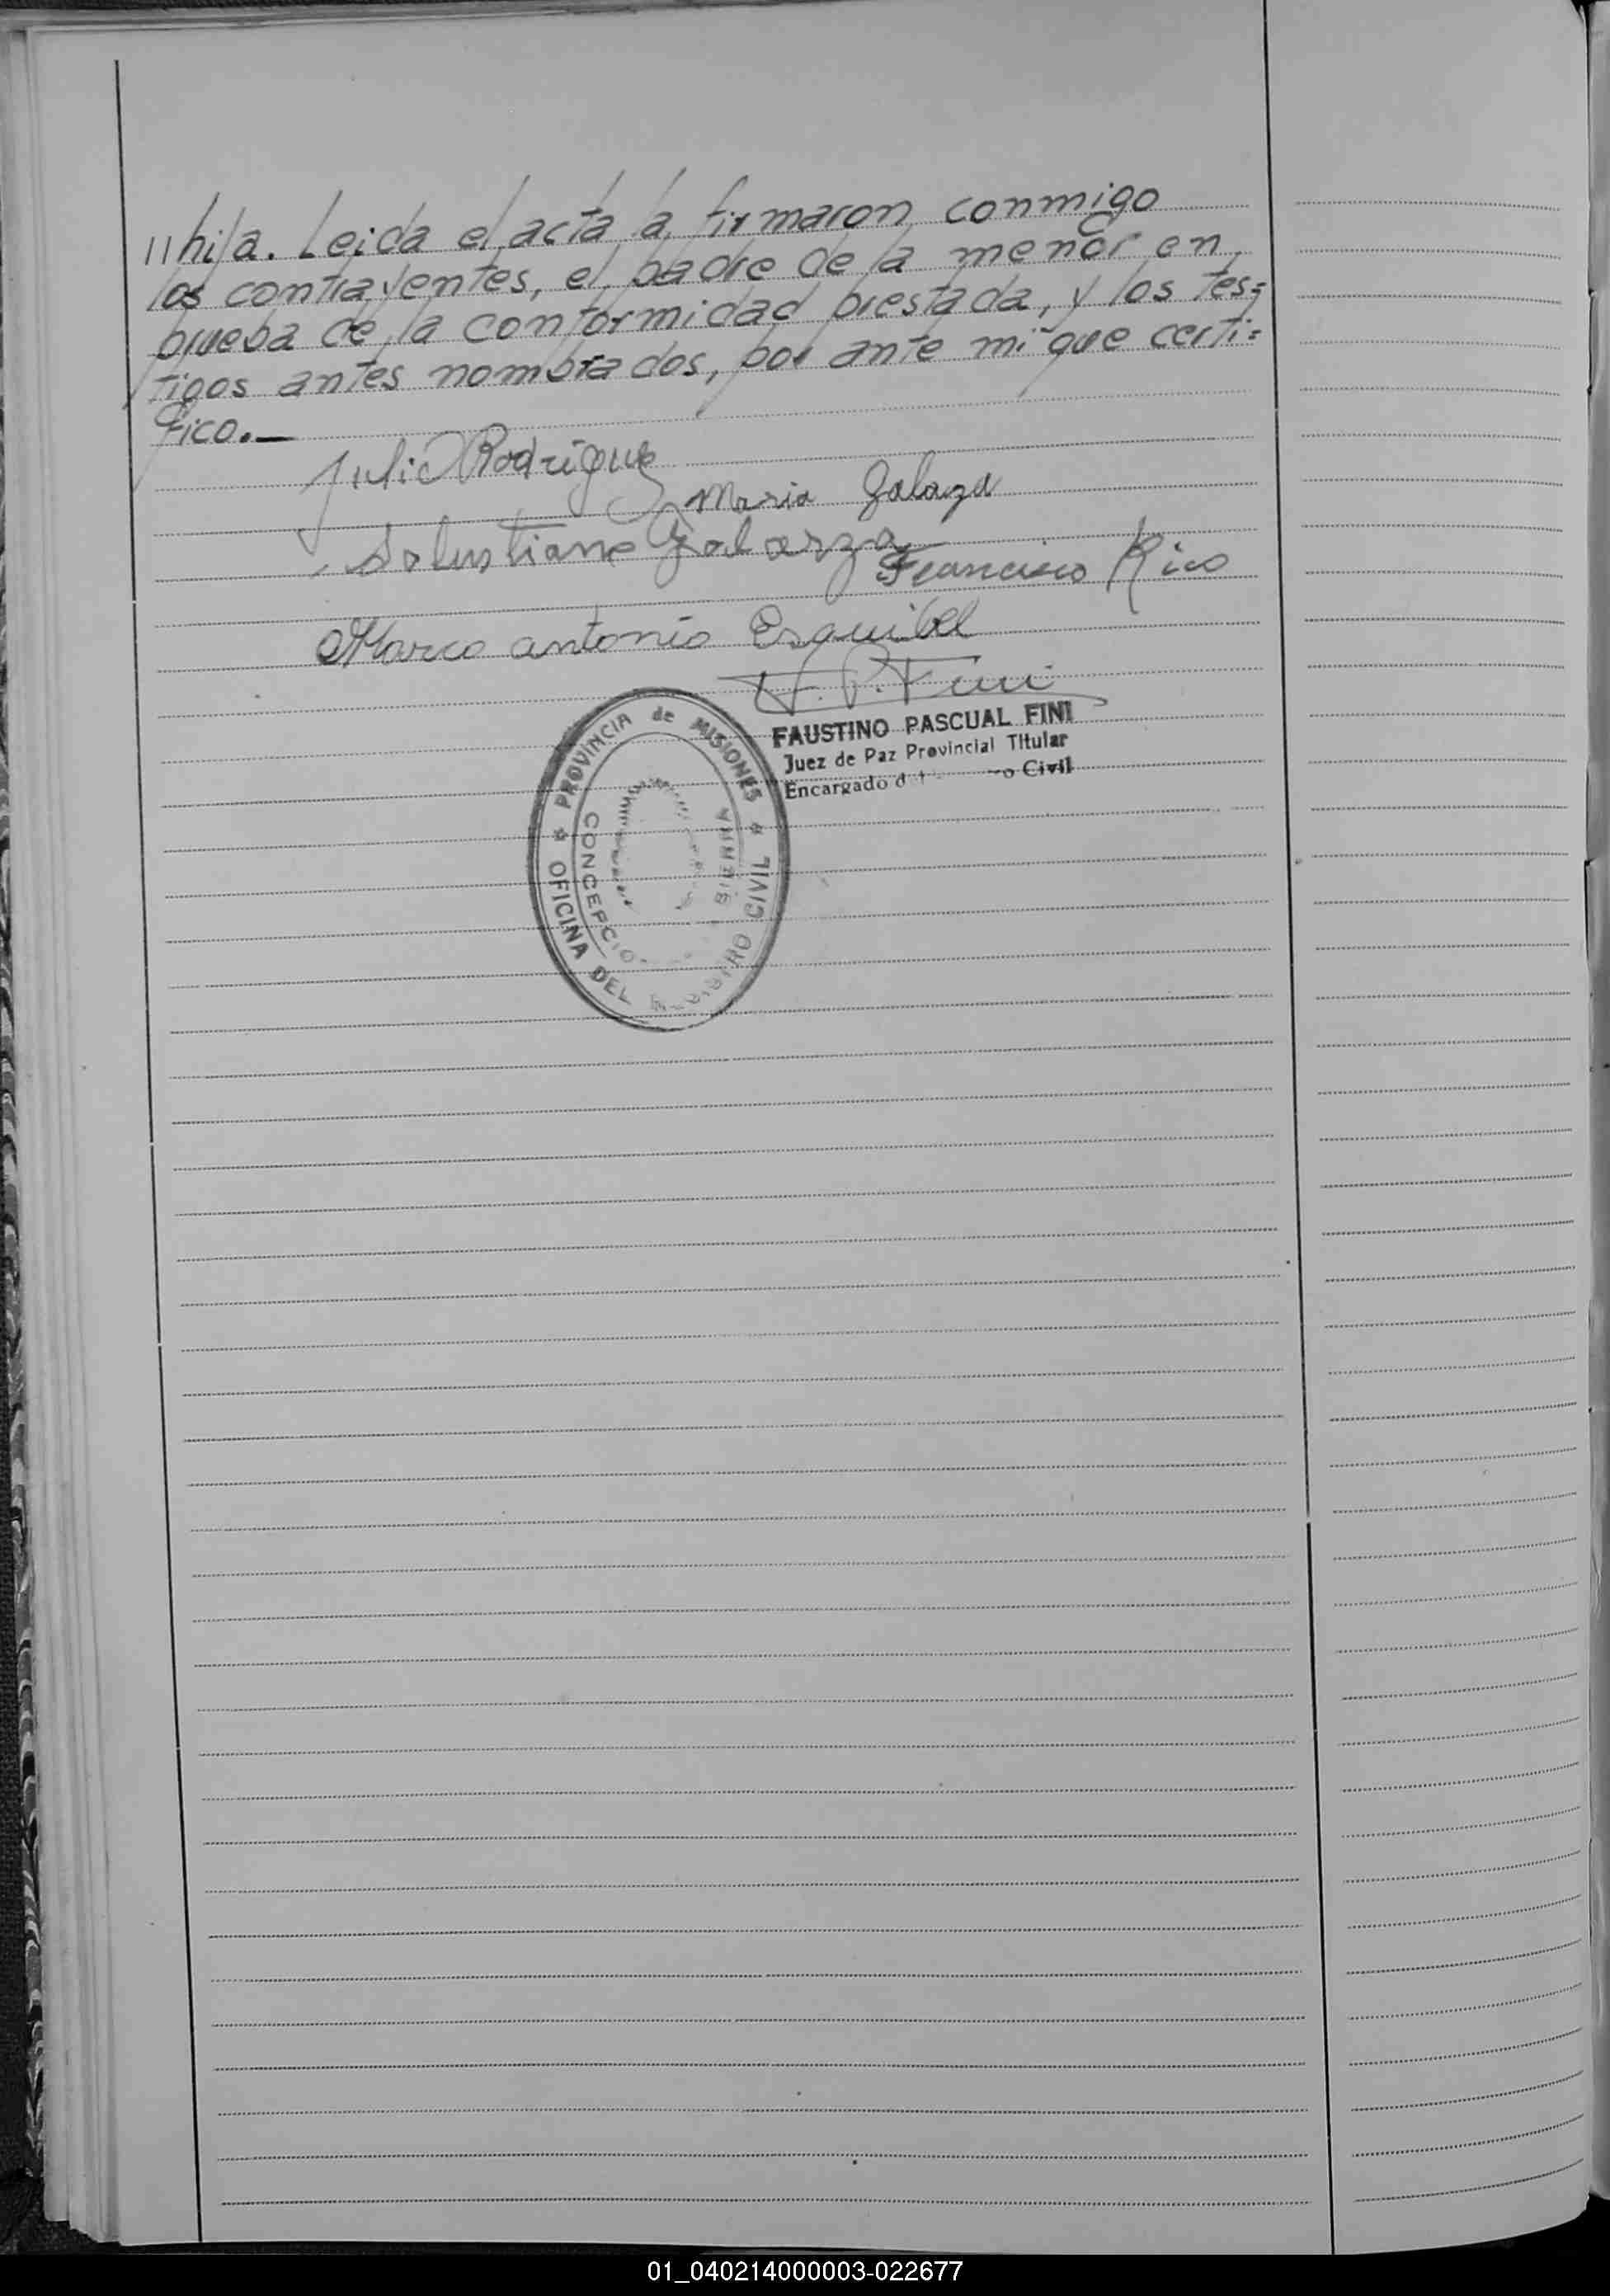 //hija. Leida el acta la firmaron conmigo
los contrayentes, el padre de la menor en
prueba de la conformidad prestada, y los tes=
tigos antes nombrados, por ante mi que certi=
fico.—
Julio Rodriguez
Maria Galaza
Salustiano Galarza
Francisco Rico
Marco antonio Esquibel
F. P. Fini
FAUSTINO PASCUAL FINI
Juez de Paz Provincial Titular
Encargado d Civil
PROVINCIA de MISIONES
OFICINA DEL CIVIL
CONCEPCIO
SIERRA
01_040214000003-022677